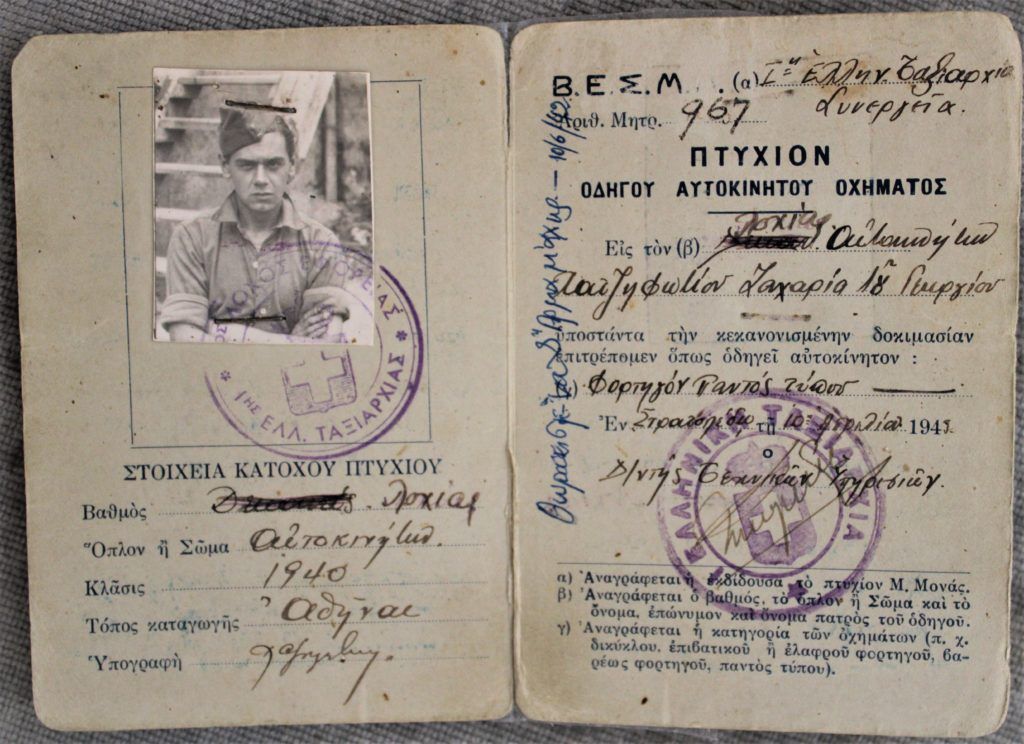 ΤΗΣ ΕΛΛ. ΤΑΞΙΑΡΧΙΑΣ
ΣΤΟΙΧΕΙΑ ΚΑΤΟΧΟΥ ΠΤΥΧΙΟΥ
Βαθμὸς Λοχίας
Ὅπλον ἢ Σῶμα
Κλᾶσις 1940
Τόπος καταγωγῆς Ἀθῆναι
Ὑπογραφὴ
Β.Ε.Σ.Μ. . . (α) Iῃ Ἑλλην. Ταξιαρχία
Συνεργεῖα.
Ἀριθ. Μητρ. 967
ΠΤΥΧΙΟΝ
ΟΔΗΓΟΥ ΑΥΤΟΚΙΝΗΤΟΥ ΟΧΗΜΑΤΟΣ
Λοχίαν
Εἰς τὸν (β)
Ζαχαρία τοῦ Γεωργίου
ὑποστάντα τὴν κεκανονισμένην δοκιμασίαν
ἐπιτρέπομεν ὅπως ὁδηγεῖ αὐτοκίνητον :
Φορτηγόν παντός τύπου
Ἐν Στρατοπέδῳ τῇ 10 Ἀπριλίου 194
Δ)ντὴς Τεχνικῶν Ὑπηρεσιῶν.
ΕΛΛΗΝΙΚΗ ΤΑΞΙΑΡΧΙΑ
α) Ἀναγράφεται ἡ ἐκδίδουσα τὸ πτυχίον Μ. Μονάς.
β) Ἀναγράφεται ὁ βαθμός, τὸ ὅπλον ἢ Σῶμα καὶ τὸ
ὄνομα, ἐπώνυμον καὶ ὄνομα πατρὸς τοῦ ὁδηγοῦ.
γ) Ἀναγράφεται ἡ κατηγορία τῶν ὀχημάτων (π. χ.
δικύκλου, ἐπιβατικοῦ ἢ ἐλαφροῦ φορτηγοῦ, βα-
ρέως φορτηγοῦ, παντὸς τύπου).
10/6/42